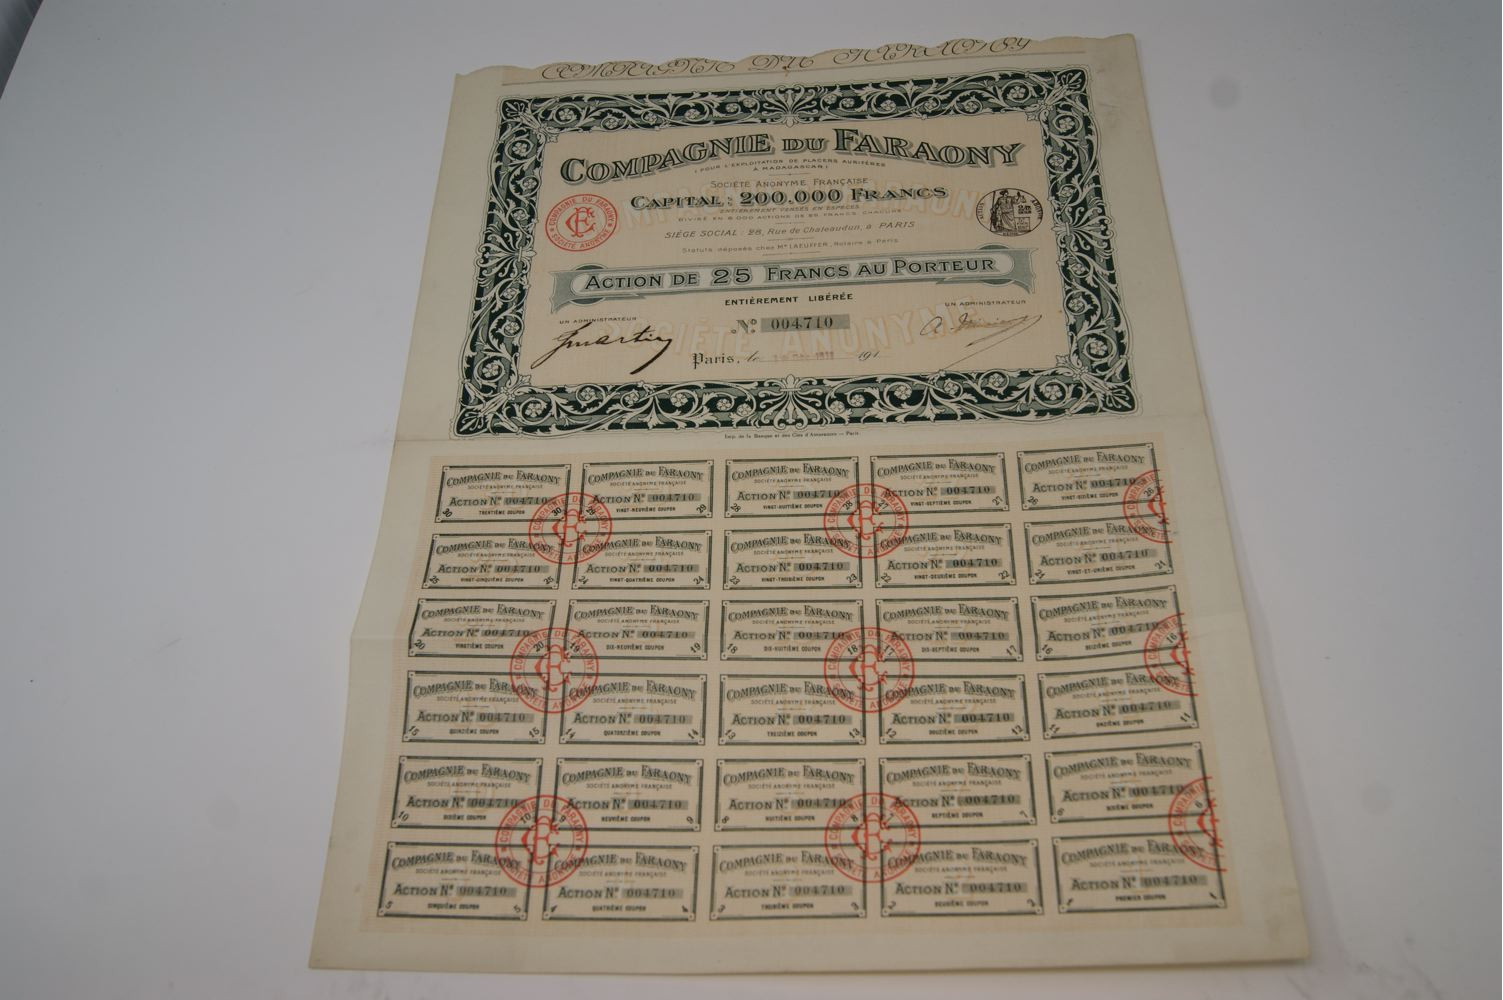 COMPAGNIE DU FARAONY
(POUR L'EXPLOITATION DE PLACERS AURIFÈRES
À MADAGASCAR)
SOCIÉTÉ ANONYME FRANÇAISE
CAPITAL : 200.000 FRANCS
ENTIÈREMENT VERSÉS EN ESPÈCES
DIVISÉ EN 8.000 ACTIONS DE 25 FRANCS CHACUNE
SIÈGE SOCIAL : 28, Rue de Chateaudun, à PARIS
Statuts déposés chez Me LAEUFFER, Notaire à Paris
COMPAGNIE DU FARAONY
SOCIÉTÉ ANONYME
ACTION DE 25 FRANCS AU PORTEUR
ENTIÈREMENT LIBÉRÉE
UN ADMINISTRATEUR
UN ADMINISTRATEUR
No 004,710
SOCIÉTÉ ANONYME
Paris, le 191
Imp. de la Banque et des Cies d'Assurances — Paris
COMPAGNIE DU FARAONY COMPAGNIE DU FARAONY COMPAGNIE DU FARAONY COMPAGNIE DU FARAONY COMPAGNIE DU FARAONY
SOCIÉTÉ ANONYME FRANÇAISE SOCIÉTÉ ANONYME FRANÇAISE SOCIÉTÉ ANONYME FRANÇAISE SOCIÉTÉ ANONYME FRANÇAISE SOCIÉTÉ ANONYME FRANÇAISE
ACTION No 004,710 ACTION No 004,710 ACTION No 004,710 ACTION No 004,710 ACTION No 004,710
30 TRENTIÈME COUPON 30 29 VINGT-NEUVIÈME COUPON 29 28 VINGT-HUITIÈME COUPON 28 27 VINGT-SEPTIÈME COUPON 27 26 VINGT-SIXIÈME COUPON 26
COMPAGNIE DU FARAONY COMPAGNIE DU FARAONY COMPAGNIE DU FARAONY COMPAGNIE DU FARAONY COMPAGNIE DU FARAONY
SOCIÉTÉ ANONYME FRANÇAISE SOCIÉTÉ ANONYME FRANÇAISE SOCIÉTÉ ANONYME FRANÇAISE SOCIÉTÉ ANONYME FRANÇAISE SOCIÉTÉ ANONYME FRANÇAISE
ACTION No 004,710 ACTION No 004,710 ACTION No 004,710 ACTION No 004,710 ACTION No 004,710
25 VINGT-CINQUIÈME COUPON 25 24 VINGT-QUATRIÈME COUPON 24 23 VINGT-TROISIÈME COUPON 23 22 VINGT-DEUXIÈME COUPON 22 21 VINGT-ET-UNIÈME COUPON 21
COMPAGNIE DU FARAONY COMPAGNIE DU FARAONY COMPAGNIE DU FARAONY COMPAGNIE DU FARAONY COMPAGNIE DU FARAONY
SOCIÉTÉ ANONYME FRANÇAISE SOCIÉTÉ ANONYME FRANÇAISE SOCIÉTÉ ANONYME FRANÇAISE SOCIÉTÉ ANONYME FRANÇAISE SOCIÉTÉ ANONYME FRANÇAISE
ACTION No 004,710 ACTION No 004,710 ACTION No 004,710 ACTION No 004,710 ACTION No 004,710
20 VINGTIÈME COUPON 20 19 DIX-NEUVIÈME COUPON 19 18 DIX-HUITIÈME COUPON 18 17 DIX-SEPTIÈME COUPON 17 16 SEIZIÈME COUPON 16
COMPAGNIE DU FARAONY COMPAGNIE DU FARAONY COMPAGNIE DU FARAONY COMPAGNIE DU FARAONY COMPAGNIE DU FARAONY
SOCIÉTÉ ANONYME FRANÇAISE SOCIÉTÉ ANONYME FRANÇAISE SOCIÉTÉ ANONYME FRANÇAISE SOCIÉTÉ ANONYME FRANÇAISE SOCIÉTÉ ANONYME FRANÇAISE
ACTION No 004,710 ACTION No 004,710 ACTION No 004,710 ACTION No 004,710 ACTION No 004,710
15 QUINZIÈME COUPON 15 14 QUATORZIÈME COUPON 14 13 TREIZIÈME COUPON 13 12 DOUZIÈME COUPON 12 11 ONZIÈME COUPON 11
COMPAGNIE DU FARAONY COMPAGNIE DU FARAONY COMPAGNIE DU FARAONY COMPAGNIE DU FARAONY COMPAGNIE DU FARAONY
SOCIÉTÉ ANONYME FRANÇAISE SOCIÉTÉ ANONYME FRANÇAISE SOCIÉTÉ ANONYME FRANÇAISE SOCIÉTÉ ANONYME FRANÇAISE SOCIÉTÉ ANONYME FRANÇAISE
ACTION No 004,710 ACTION No 004,710 ACTION No 004,710 ACTION No 004,710 ACTION No 004,710
10 DIXIÈME COUPON 10 9 NEUVIÈME COUPON 9 8 HUITIÈME COUPON 8 7 SEPTIÈME COUPON 7 6 SIXIÈME COUPON 6
COMPAGNIE DU FARAONY COMPAGNIE DU FARAONY COMPAGNIE DU FARAONY COMPAGNIE DU FARAONY COMPAGNIE DU FARAONY
SOCIÉTÉ ANONYME FRANÇAISE SOCIÉTÉ ANONYME FRANÇAISE SOCIÉTÉ ANONYME FRANÇAISE SOCIÉTÉ ANONYME FRANÇAISE SOCIÉTÉ ANONYME FRANÇAISE
ACTION No 004,710 ACTION No 004,710 ACTION No 004,710 ACTION No 004,710 ACTION No 004,710
5 CINQUIÈME COUPON 5 4 QUATRIÈME COUPON 4 3 TROISIÈME COUPON 3 2 DEUXIÈME COUPON 2 1 PREMIER COUPON 1